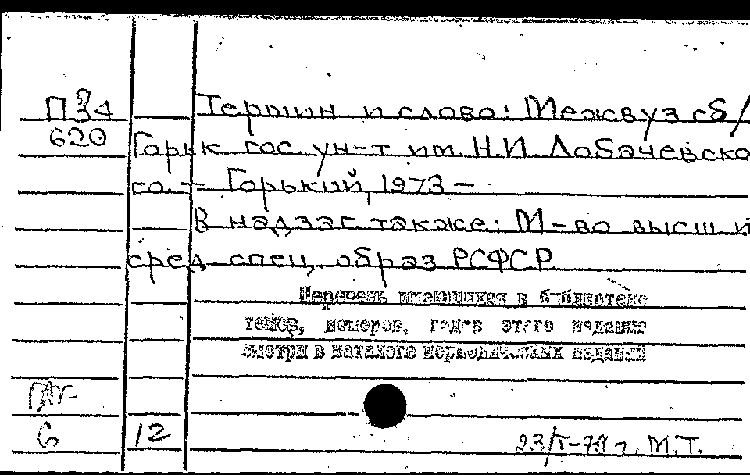 П34 Термин и слово: Межвуз сб/
620 Горьк гос ун-т им. Н.И Лобачевско
го. — Горький, 1973 —
В надзаг также: М-во высш и
сред спец. образ РСФСР
Перечень имеющихся в библиотеке
томов, номеров, годов этого издания
смотри в каталоге периодических изданий
6 12 23/X-79 г. М.Т.